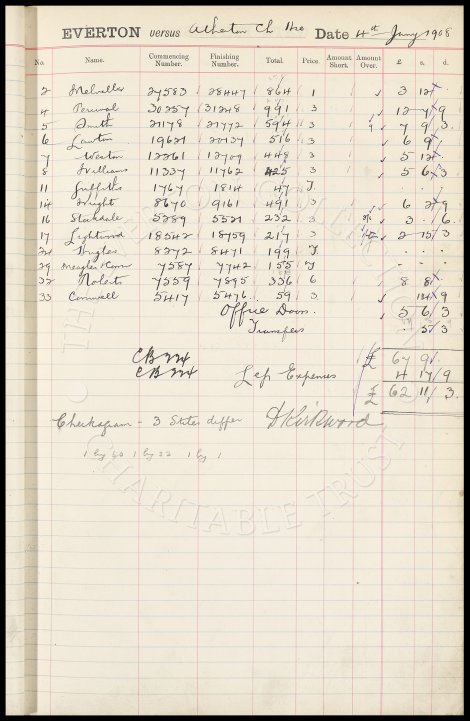 EVERTON versus Atherton Ch Hse Date 4th Jany 1908
No. Name. Commencing Number. Finishing Number. Total. Price. Amount Short. Amount Over. £ s. d.
2 27583 28447 864 1 3 12
4 Percival 30257 31248 991 3 12 7 9
5 Smith 21178 21772 594 3 7 9 3
6 Lawton 19621 20137 516 3 6 9
7 Weston 12261 12709 448 3 5 12
8 Williams 11337 11762 425 3 5 6 3
11 Griffiths 1767 1814 47 T
14 Wright 8670 9161 491 3 6 2 9
16 Stockdale 5289 5521 232 3 3 . 6
17 Lightwood 18542 18759 217 3 2 15 3
24 Ingles 8272 8471 199 T
29 Meagher & Conn 7587 7742 155 T
32 Roberts 7559 7895 336 6 8 8
33 Cornwell 5417 5476 59 3 14 9
Office Door 5 6 3
Transfers . 5 3
CB 224 £ 67 9
CB 224 Less Expenses 4 17 9
£ 62 11 3
Checkagram - 3 Stiles differ D Kirkwood
1 by 50 1 by 22 1 by 1
CHARITABLE TRUST